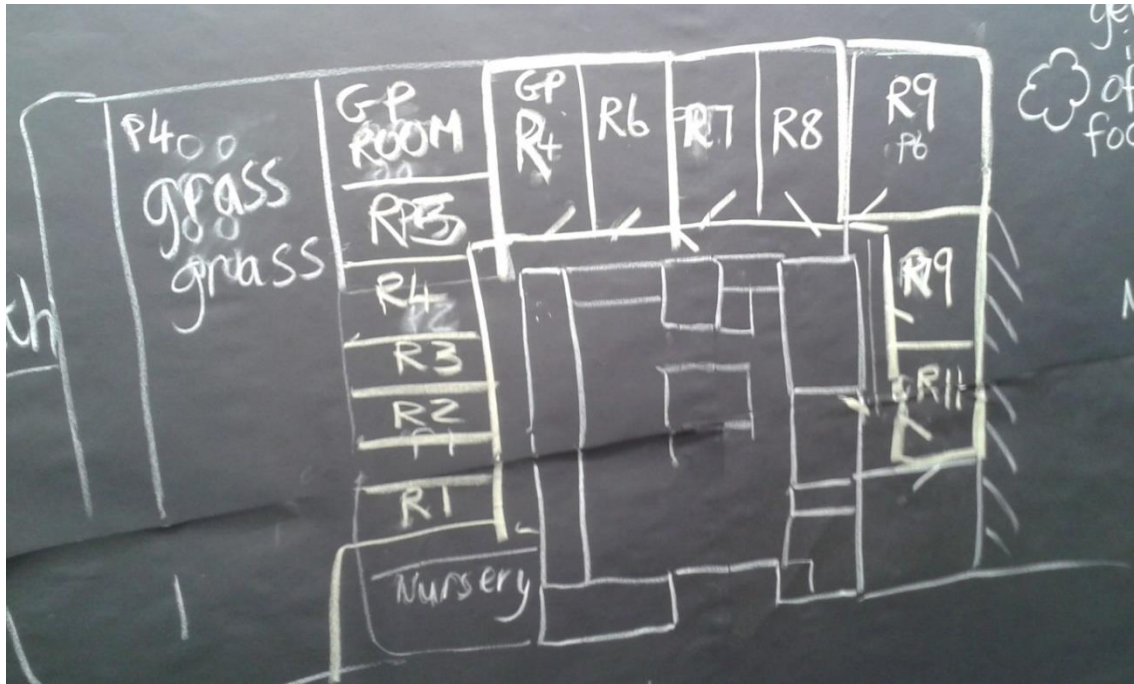 P4
grass
grass
GP
ROOM
R4
R3
R2
P1
R1
Nursery
GP
R4
R6
R7
R8
R9
P6
R9
R11
th
of
foo